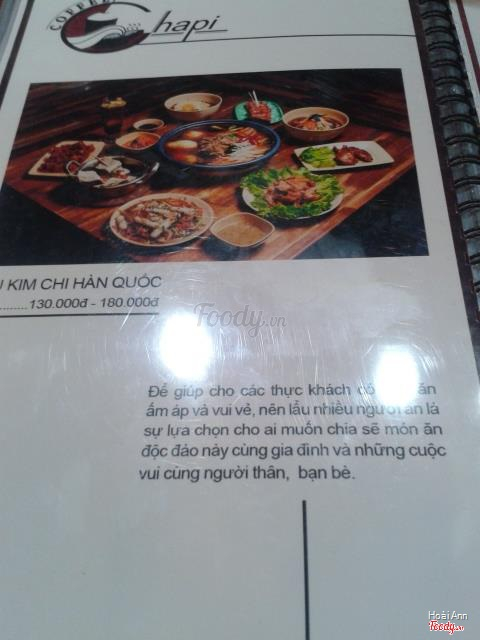 COFFEE
Chapi
KIM CHI HÀN QUỐC
........130.000đ - 180.000đ
Foody.vn
Để giúp cho các thực khách có ăn
ấm áp và vui vẻ, nên lẩu nhiều người ăn là
sự lựa chọn cho ai muốn chia sẽ món ăn
độc đáo này cùng gia đình và những cuộc
vui cùng người thân, bạn bè.
Hoài Ann
Foody.vn